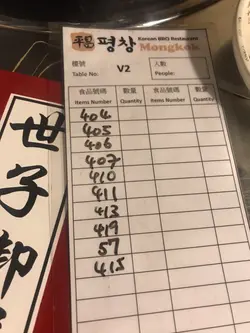 平昌 평창 Korean BBQ Restaurant
Mongkok
檯號 人數
Table No. V2 People:
食品號碼 數量 食品號碼 數量
Items Number Quantity Items Number Quantity
404
405
406
407
410
411
413
419
57
415
世子御